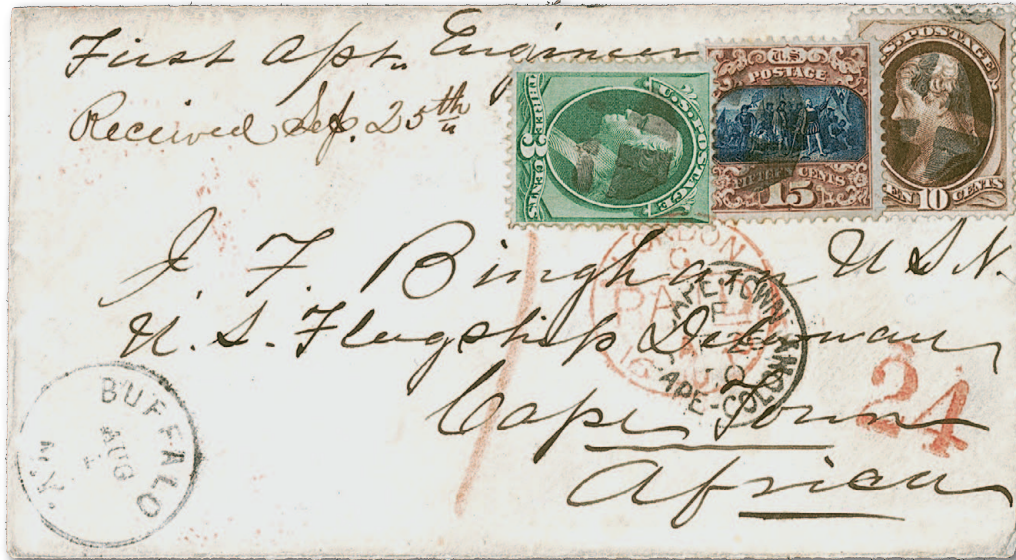 First Apt. Engineer
Received Sep. 25th
U.S. POSTAGE
THREE 3 CENTS
U.S. POSTAGE
FIFTEEN CENTS
15
U.S. POSTAGE
TEN 10 CENTS
J. F. Bingham U S N.
U. S. Flagship Delawar
Cape Town
Africa
LONDON
PAID
CAPE-TOWN
CAPE-COLONY
24
BUFFALO
AUG
N.Y.